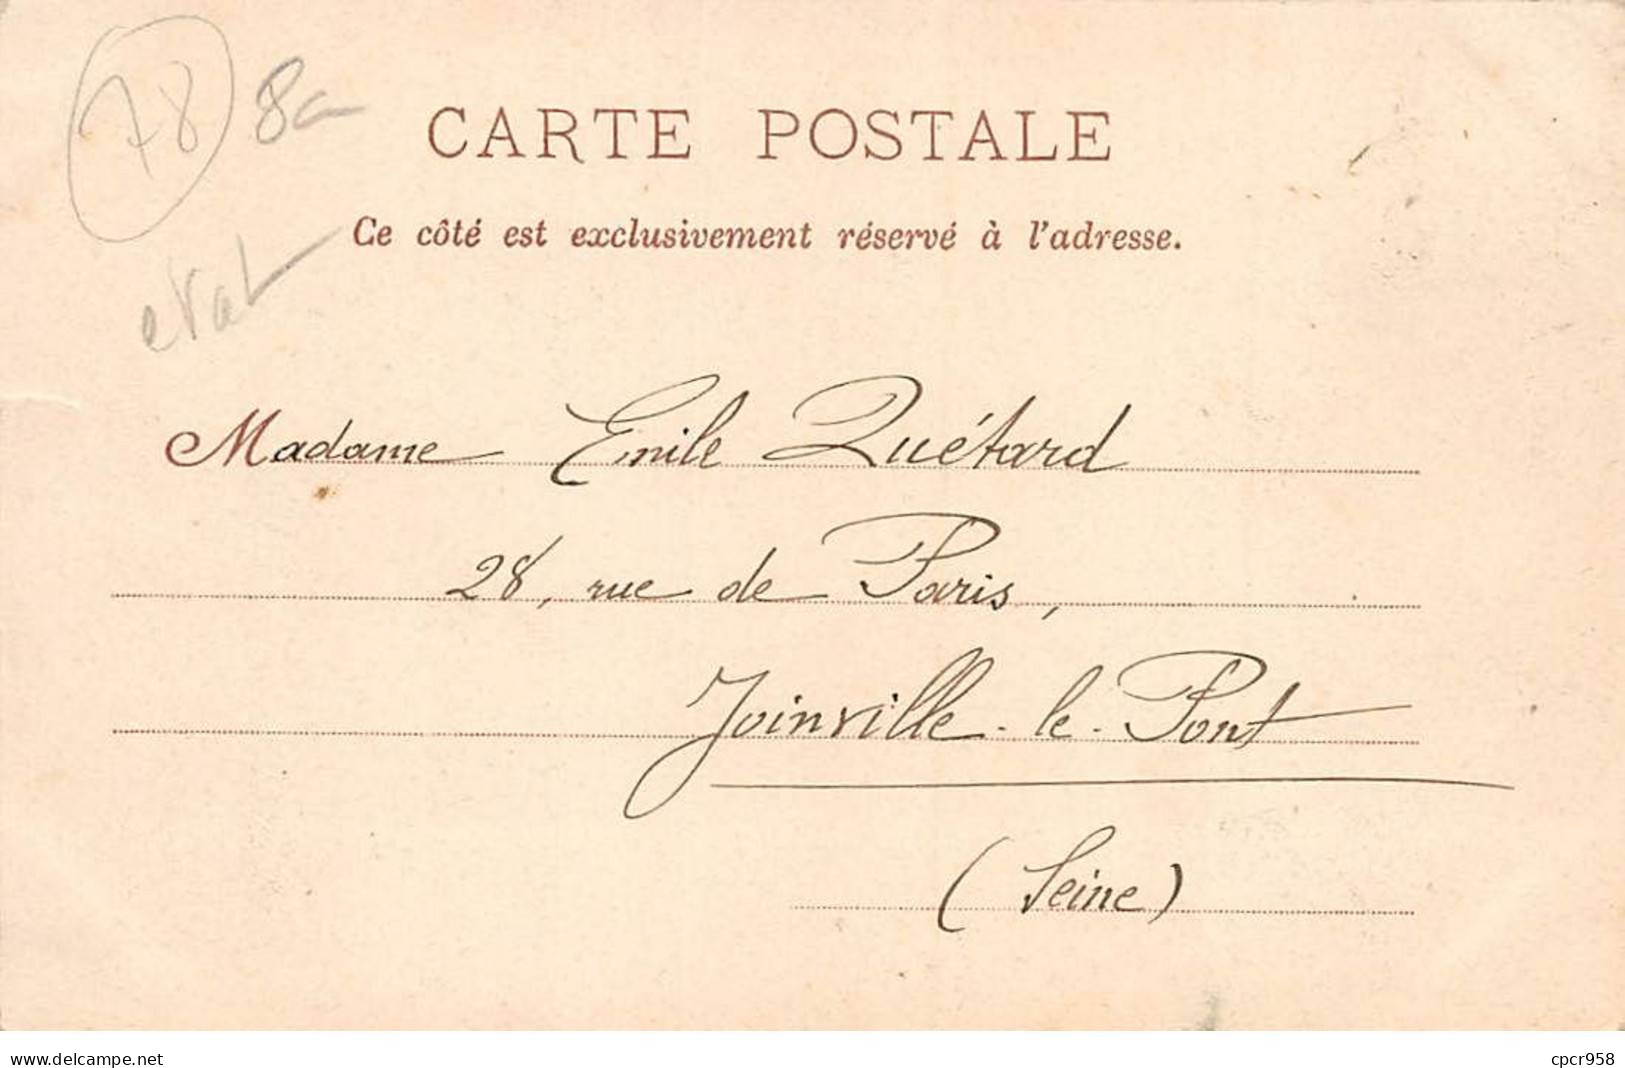 78 8a
CARTE POSTALE
Ce côté est exclusivement réservé à l'adresse.
Madame Emile Quétard
28, rue de Paris,
Joinville-le-Pont
(Seine)
www.delcampe.net
cpcr958